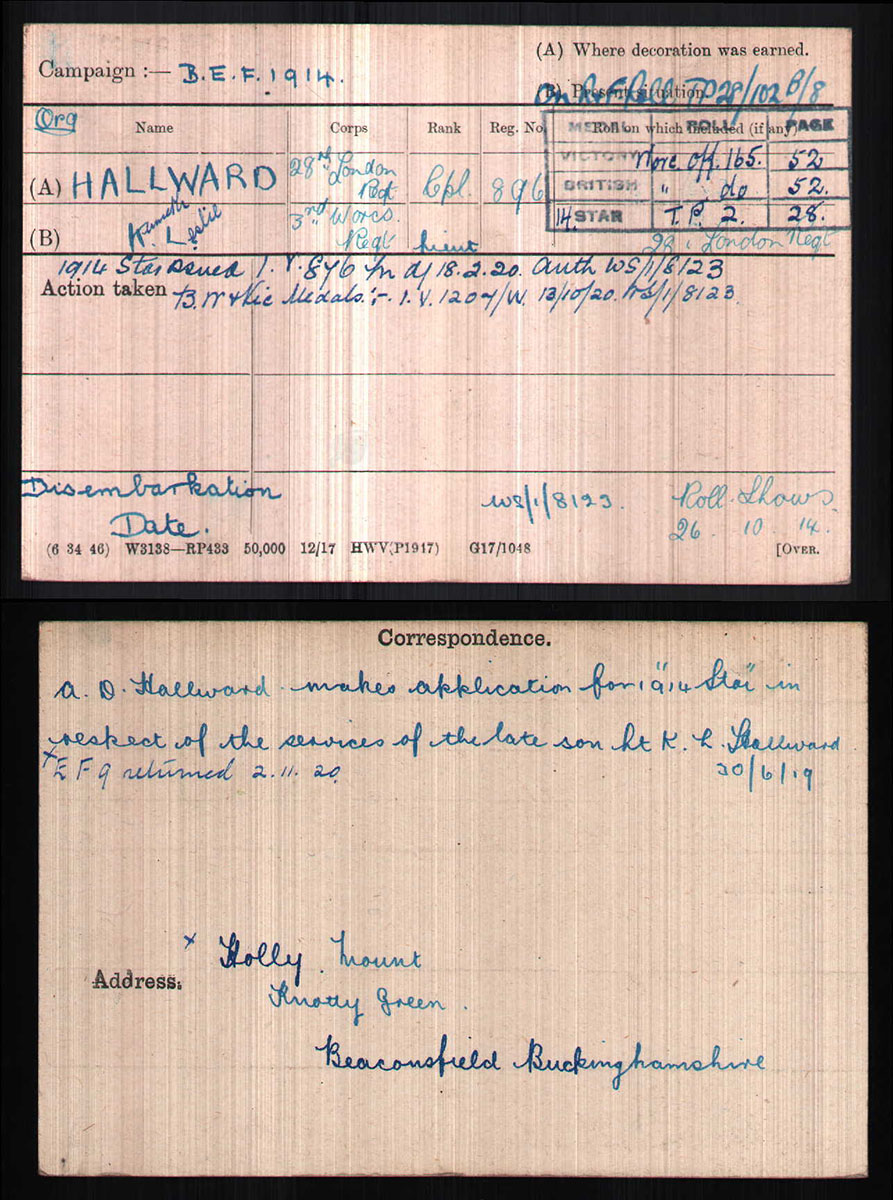 (A) Where decoration was earned.
Campaign :— B.E.F. 1914.
(B) Present situation
On R&F Roll TP 28/102 B/8
Org
Name Corps Rank Reg. No. Roll on which included (if any)
MEDAL ROLL PAGE
(A) HALLWARD 28th London Regt Cpl. 896
VICTORY Worc. Off. 165. 52
BRITISH " do 52.
14 STAR T.P. 2. 28.
(B) K. Leslie 3rd Worcs. Regt Lieut
28. London Regt
1914 Star issued I.V. 876 18.2.20. Auth WS/1/8123
Action taken B.W & Vic Medals :- I.V. 1207/W. 13/10/20. WS/1/8123
Disembarkation WS/1/8123. Roll Shows.
Date. 26. 10. 14.
(6 34 46) W3138—RP433 50,000 12/17 HWV(P1917) G17/1048 [OVER.
Correspondence.
A. D. Hallward makes application for "1914 Star" in
respect of the services of the late son Lt K. L. Hallward
30/6/19
x E F 9 returned 2.11.20
Address. x Holly Mount
Knotty Green.
Beaconsfield Buckinghamshire